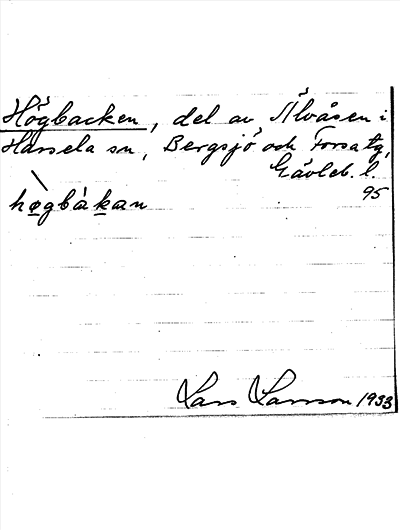 Högbacken, del av Älvåsen i
Hassela sn, Bergsjö och Forsa tg,
Gävleb. l.
95
hø̀gbàkan
Lars Larsson 1933